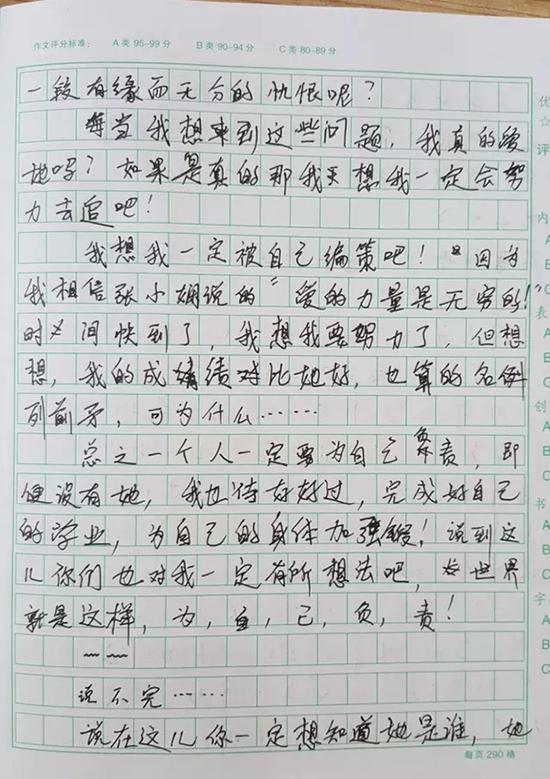 作文评分标准： A类 95-99分 B类 90-94分 C类 80-89分
一段有缘而无分的忧恨呢？
每当我想来到这些问题，我真的爱
她吗？如果是真的那我天想我一定会努
力去追吧！
我想我一定被自己编策吧！"因为
我相信张小娴说的"爱的力量是无穷的！"
时间快到了，我想我要努力了，但想
想，我的成绩对比她好，也算的名例
列前矛，可为什么……
总之一个人一定要为自己负责，即
便没有她，我也得好好过，完成好自己
的学业，为自己的身体加强！说到这
儿你们也对我一定有所想法吧，世界
就是这样，为，自，己，负，责！
~~
说不完……
说在这儿你一定想知道她是谁，她
每页 290 格
优
☆
评
内
A
B
C
表
A
B
C
创
A
B
C
书
A
字
A
B
C